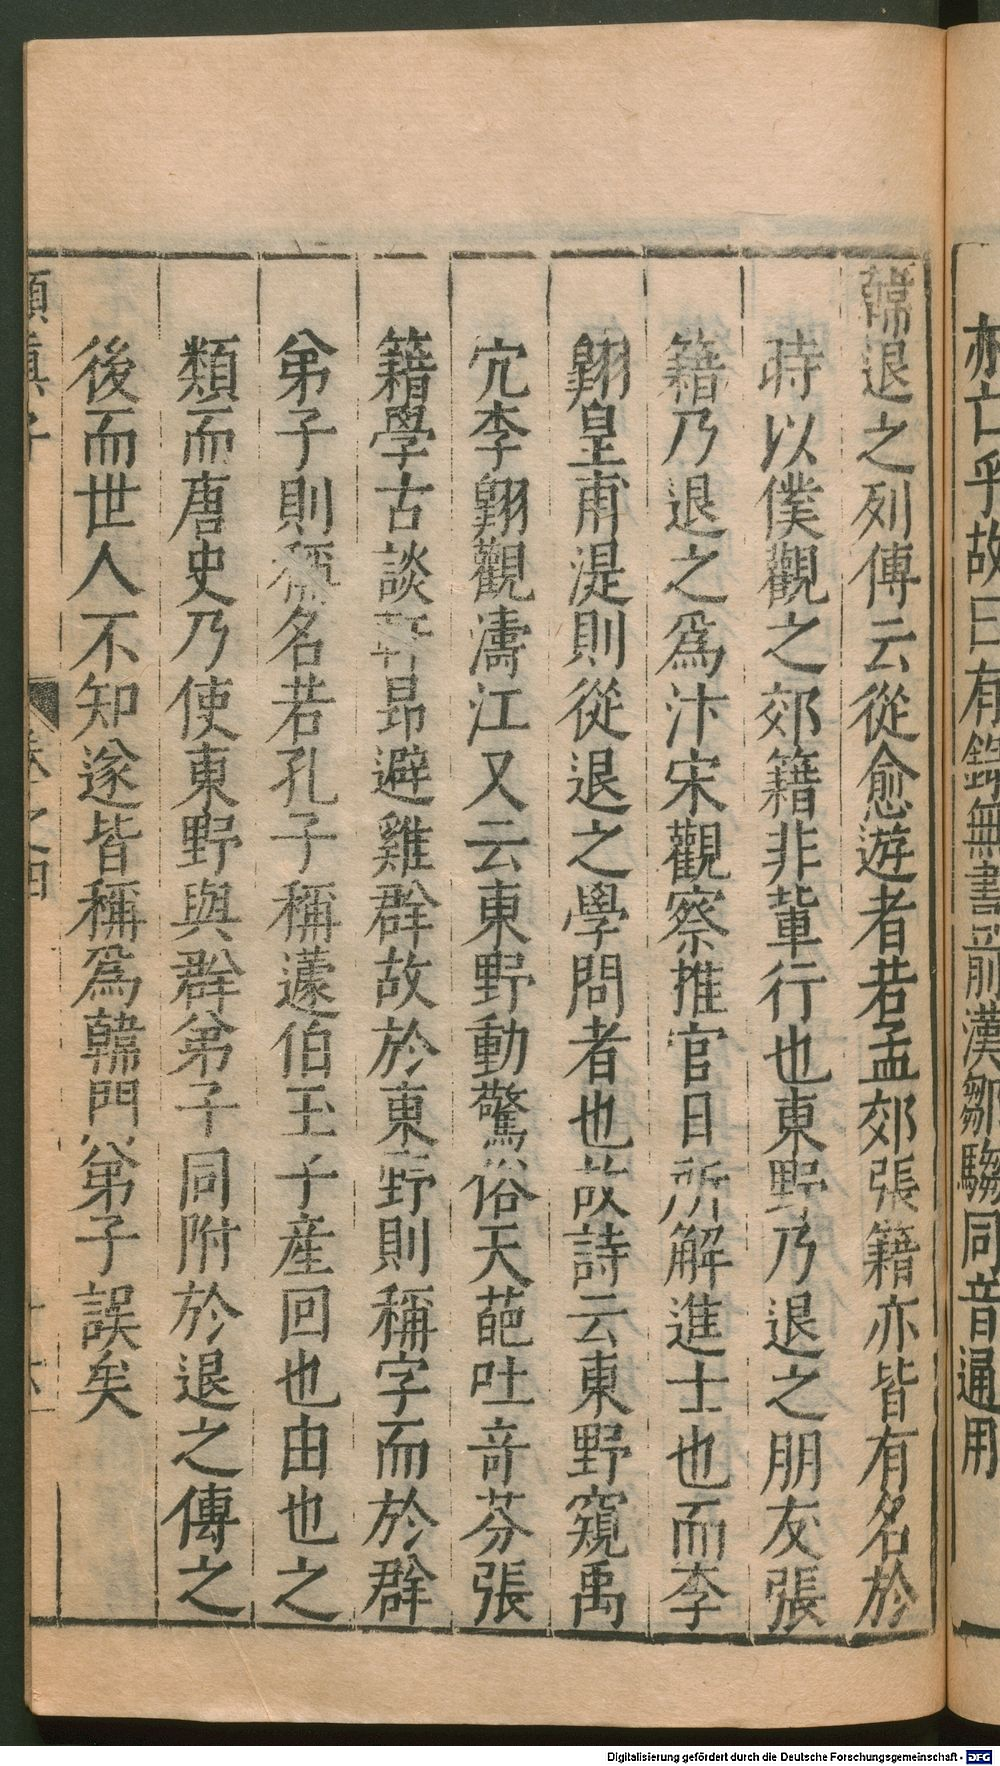 亦亡乎故曰有 無書 前漢鄒騶同音通用
韓退之列傳云從愈遊者若孟郊張籍亦皆有名於
時以僕觀之郊籍非輩行也東野乃退之朋友張
籍乃退之爲汴宋觀察推官日所解進士也而李
翱皇甫湜則從退之學問者也故詩云東野窺禹
穴李翱觀濤江又云東野動驚俗天葩吐奇芬張
籍學古談軒昂避雞群故於東野則稱字而於群
弟子則稱名若孔子稱蘧伯玉子產回也由也之
類而唐史乃使東野與群弟子同附於退之傳之
後而世人不知遂皆稱爲韓門弟子誤矣
嬾真子 卷之四
Digitalisierung gefördert durch die Deutsche Forschungsgemeinschaft - DFG